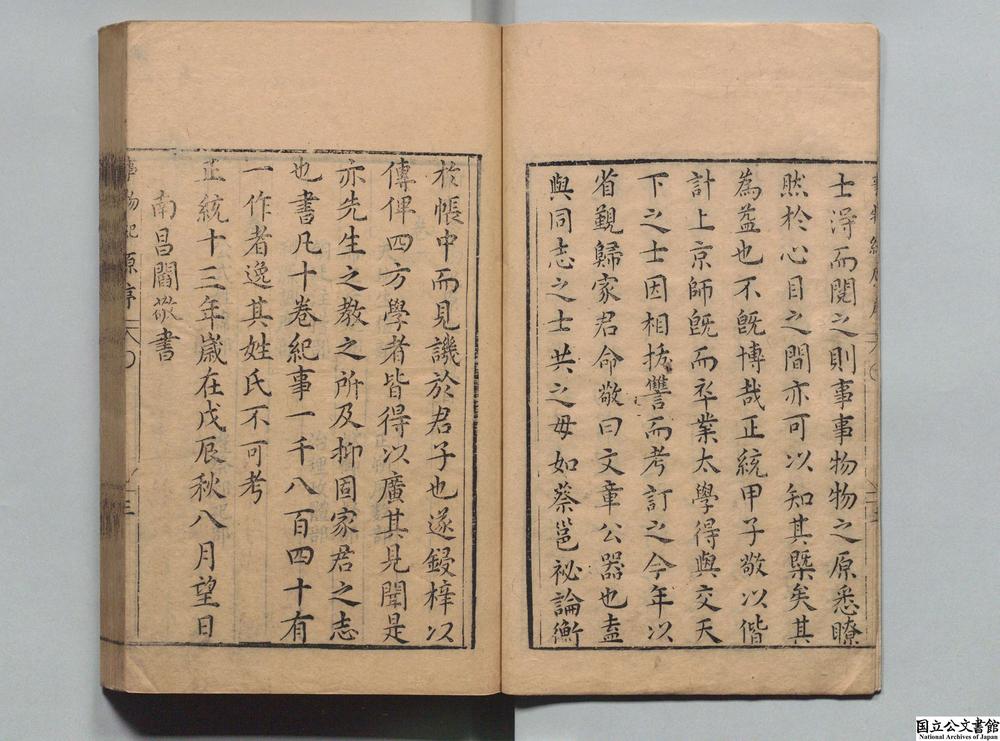 士得而閱之則事事物物之原悉瞭
然於心目之間亦可以知其槩矣其
為益也不旣博哉正統甲子敬以偕
計上京師旣而卒業太學得與交天
下之士因相抜讐而考訂之今年以
省覲歸家君命敬曰文章公器也盍
與同志之士共之毋如蔡邕祕論衡
於帳中而見譏於君子也遂鋟梓以
傳俾四方學者皆得以廣其見聞是
亦先生之教之所及抑固家君之志
也書凡十卷紀事一千八百四十有
一作者逸其姓氏不可考
正統十三年歲在戊辰秋八月望日
南昌閻敬書
事物紀原序
三
国立公文書館
National Archives of Japan